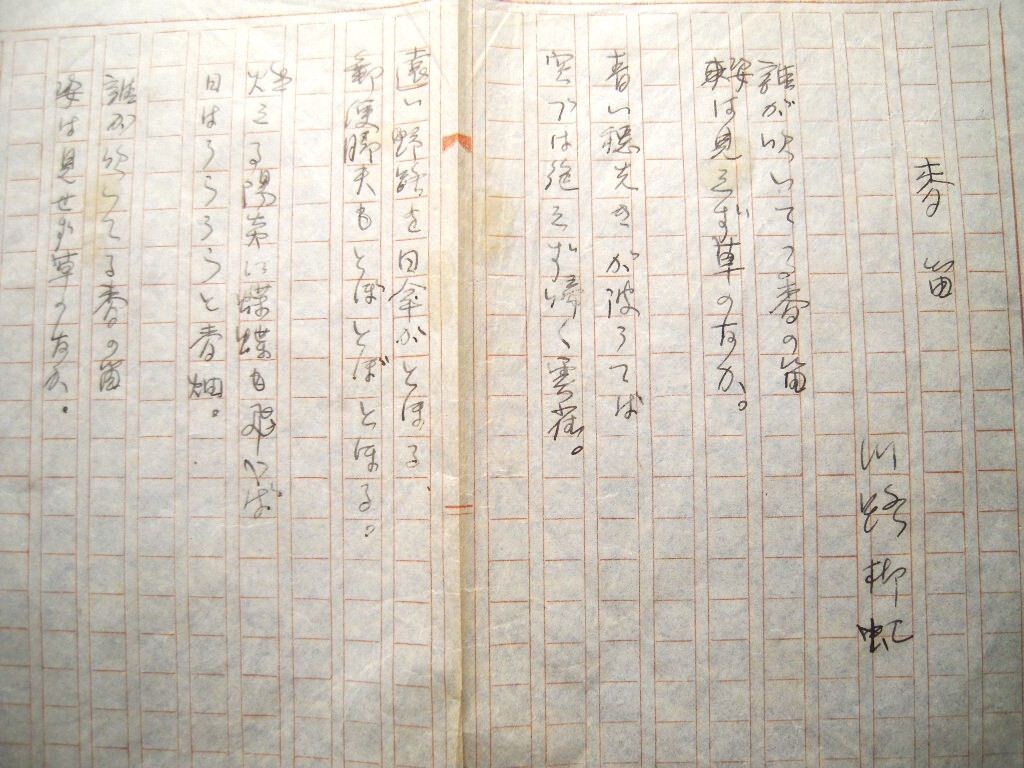 麥笛
川路柳虹
誰が吹いてる麥の笛
姿は見えず草のなか。
青い穂先きが波うてば
空では絶えず啼く雲雀。
遠い野路を日傘がとほる、
郵便脚夫もとぼとぼとほる。
燃える陽炎に蝶蝶も飛べば
日はうらうらと麥畑。
誰が吹いてる麥の笛
姿は見せず草のなか。